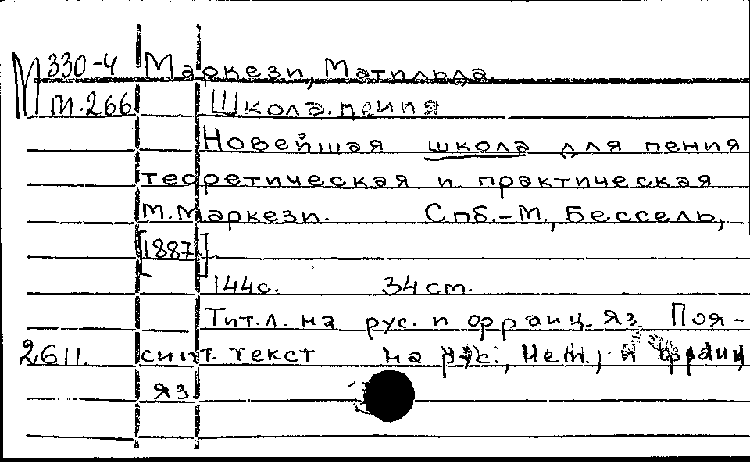 М 330-4 Маркези, Матильда
М.266 Школа пения
Новейшая школа для пения
теоретическая и практическая
М. Маркези. Спб.-М., Бессель,
[1887]
144с. 34 см.
Тит.л. на рус. и франц. яз. Поя-
2611. снит. текст на рус., нем., и франц
яз.